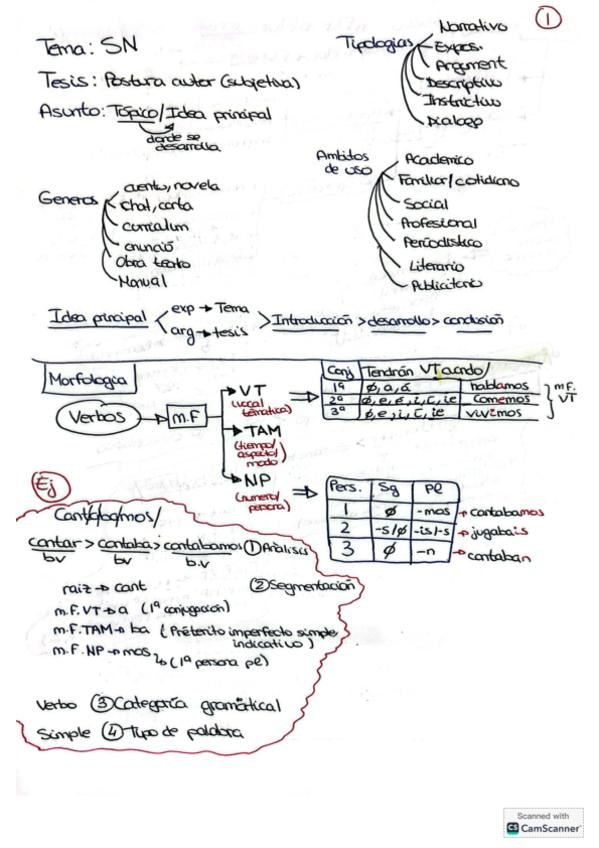 1
Tema: SN
Tesis: Postura autor (subjetiva)
Asunto: Tópico/Idea principal
donde se
desarrolla
Tipologias
Narrativo
Expos.
Argument
Descriptivo
Instrictivo
Dialogo
Generos
cuento, novela
chat, carta
curriculum
anuncio
Obra teatro
Manual
Ambitos
de uso
Academico
Familiar/cotidiano
Social
Profesional
Periodístico
Literario
Publicitario
Idea principal
exp → Tema
arg → tesis
> Introducción > desarrollo > conclusión
Morfologia
Verbos → m.F
VT
(vocal
temática)
TAM
(tiempo/
aspecto/
modo)
NP
(numero/
persona)
Conj Tendrán VT cuando/
1ª ø, a, á hablamos
2ª ø, e, é, i, í, ie comemos
3ª ø, e, i, í, ie vivimos
m.F.
VT
Pers. Sg Pl
1 ø -mos → cantabamos
2 -s/ø -is/-s → jugabais
3 ø -n → cantaban
Ej
Cant/a/ba/mos/
cantar > cantaba > cantabamos ① Análisis
bv bv b.v
② Segmentación
raiz → cant
m.F.VT → a (1ª conjugación)
m.F.TAM → ba (Préterito imperfecto simple
indicativo)
m.F.NP → mos
↳ (1ª persona pl)
Verbo ③ Categoría gramátical
Simple ④ Tipo de palabra
Scanned with
CS CamScanner